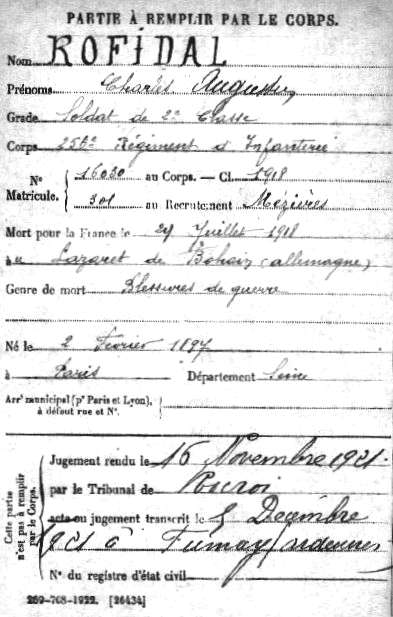 PARTIE À REMPLIR PAR LE CORPS.
Nom ROFIDAL
Prénoms Charles Augustin
Grade Soldat de 2e Classe
Corps 256e Régiment d'Infanterie
No Matricule. { 16030 au Corps. — Cl. 1918
301 au Recrutement Mézières
Mort pour la France le 24 Juillet 1918
à u Lazaret de Bohain (allemagne)
Genre de mort Blessures de guerre
Né le 2 Février 1897
à Paris Département Seine
Arrt municipal (pr Paris et Lyon), à défaut rue et No.
Cette partie n'est pas à remplir par le Corps.
Jugement rendu le 16 Novembre 1921.
par le Tribunal de Rocroi
acte ou jugement transcrit le 5 Décembre
1921 à Fumay (Ardennes)
No du registre d'état civil
269-708-1922. [26434]